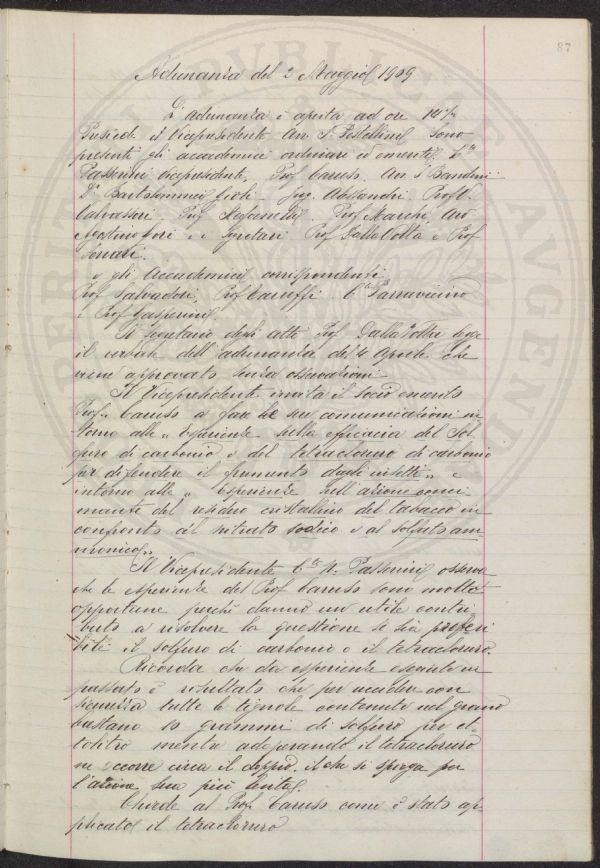 87
Adunanza del 2 Maggio 1909
L'adunanza è aperta ad ore 14½
Presiede il Vicepresidente Avv P. Pestellini. Sono
presenti gli accademici ordinari ed emeriti Cte
Passerini vicepresidente, Prof Caruso. Avv P. Bandini
Dr Bartolommei Gioli. Ing. Alessandri. Prof V.
Valvassori. Prof Stefanelli. Prof Marchi, Avv
Agostino Gori e i Segretari Prof Dalla Volta e Prof
Ferrari.
e gli Accademici corrispondenti
Prof Salvadori, Prof Caruffi Cte Parravicino
e Prof Gasperini
Il Segretario degli atti Prof Dalla Volta legge
il verbale dell'adunanza del 4 Aprile che
viene approvato senza osservazioni
Il Vicepresidente invita il socio emerito
Prof. Caruso a fare le sue comunicazioni in-
torno alle „ Esperienze sulla efficacia del Sol
furo di carbonio e del tetracloruro di carbonio
per difendere il frumento dagli insetti „ e
intorno alle „ Esperienze sull'azione conci
mante del residuo cristallino del tabacco in
confronto al nitrato sodico e al solfato am-
monico„
Il Vicepresidente Cte N. Passerini osserva
che le esperienze del Prof Caruso sono molto
opportune perchè danno un utile contri
buto a risolvere la questione se sia preferi
bile il solfuro di carbonio o il tetracloruro.
Ricorda che da esperienze eseguite in
passato è risultato che per uccidere con
sicurezza tutte le tignole contenute nel grano
bastano 10 grammi di solfuro per et-
tolitro mentre adoperando il tetracloruro
ne occorre circa il doppio, il che si spiega per
l'azione sua più lenta
Chiede al Prof. Caruso come è stato ap-
plicato il tetracloruro